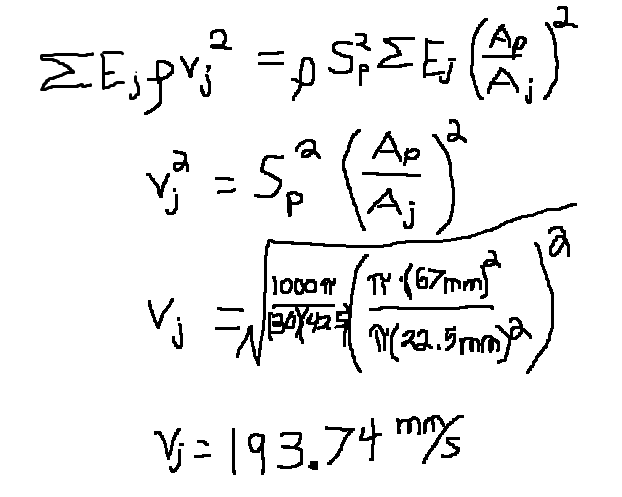 ΣE_jρv_j^2 = ρS_p^2ΣE_j(A_p/A_j)^2
v_j^2 = S_p^2(A_p/A_j)^2
v_j = √(1000π/(30)(425)(π·(67mm)^2/π(22.5mm)^2)^2)
v_j = 193.74 mm/s